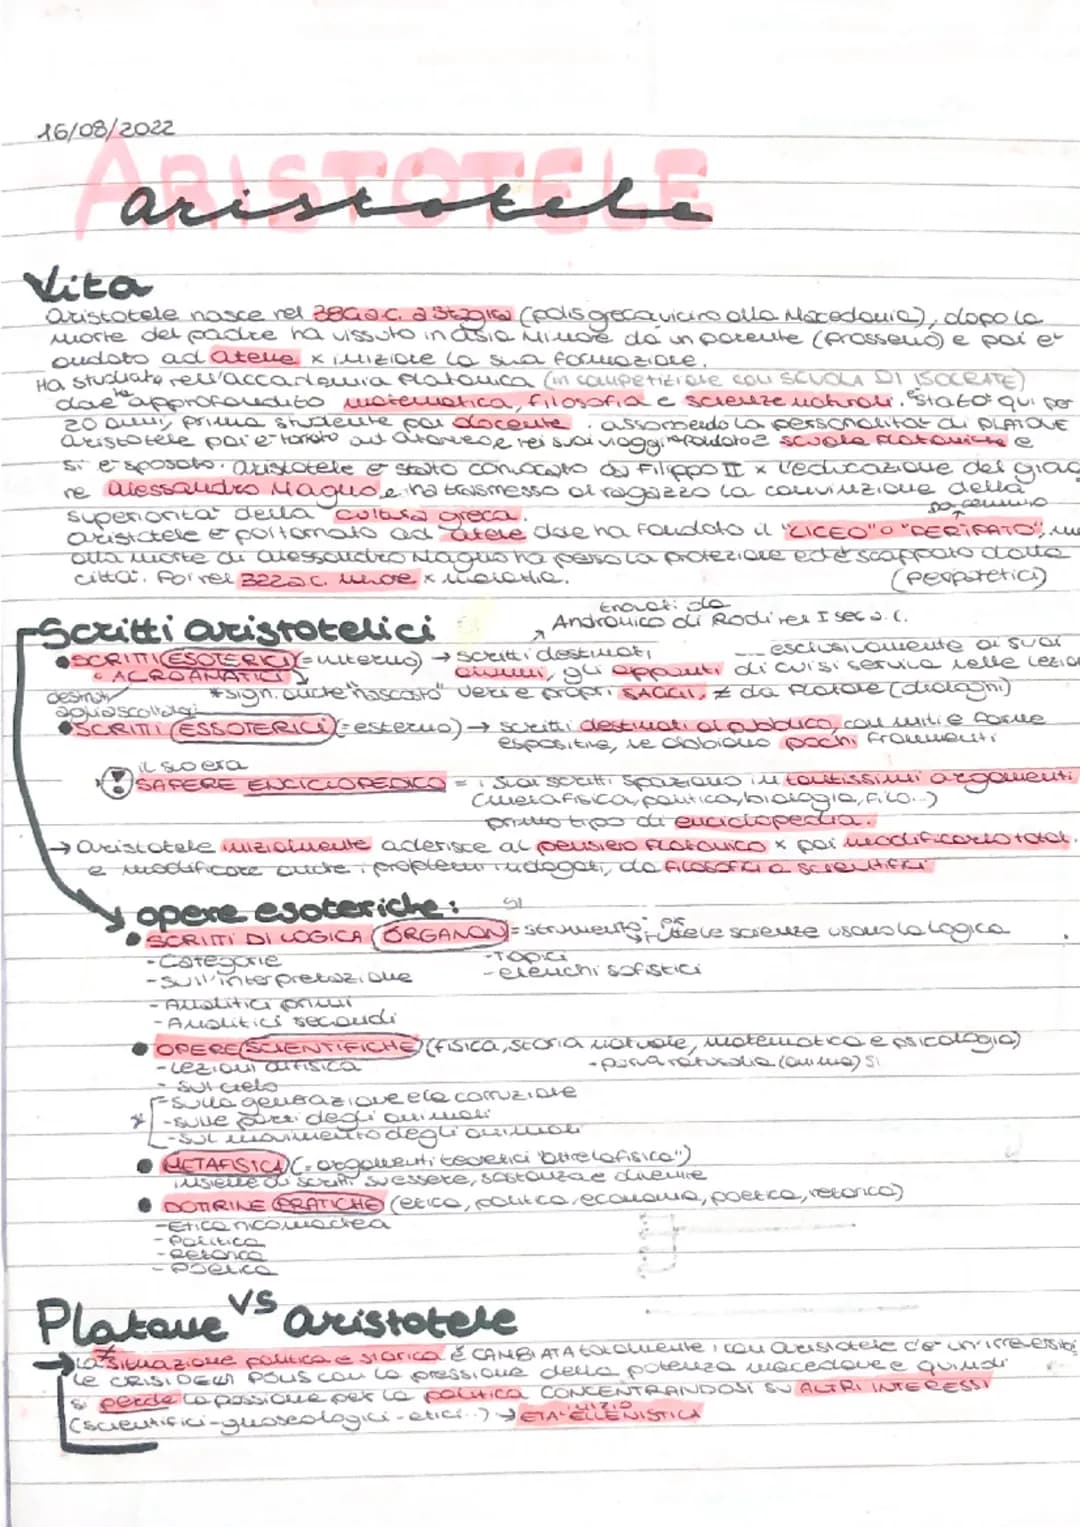 16/08/2022
ARISTOTELE
aristotele
Vita
Aristotele nasce nel 384 a.C. a Stagira (polis greca vicino alla Macedonia), dopo la
morte del padre ha vissuto in Asia Minore da un parente (Prosseno) e poi e'
andato ad Atene x iniziare la sua formazione.
Ha studiato nell'accademia Platonica (in competizione con SCUOLA DI ISOCRATE)
dove ha approfondito matematica, filosofia e scienze naturali. E' stato qui per
20 anni, prima studente poi docente. assorbendo la personalita' di PLATONE
Aristotele poi e' tornato ad e nei suoi viaggi ha fondato 2 scuole Platoniche e
si e' sposato. Aristotele e' stato convocato da Filippo II x l'educazione del giova
ne Alessandro Magno e ha trasmesso al ragazzo la convinzione della
superiorita' della cultura greca.
Aristotele e' poi tornato ad Atene dove ha fondato il "LICEO" o "PERIPATO", ma
alla morte di Alessandro Magno ha perso la protezione ed e' scappato dalla
citta'. Poi nel 322 a.C. muore x malattia. (peripatetici)
Scritti aristotelici
trovati da
Andronico di Rodi nel I sec a.C.
SCRITTI ESOTERICI (= interno) → scritti destinati esclusivamente ai suoi
O ACROAMATICI alunni, gli appunti di cui si serviva nelle lezio
destinati * sign. anche "nascosto" veri e propri SAGGI, ≠ da Platone (dialoghi)
SCRITTI ESSOTERICI (= esterno) → scritti destinati al pubblico, con miti e forme
espositive, ne abbiamo pochi frammenti
il suo era
! SAPERE ENCICLOPEDICO = i suoi scritti spaziano in tantissimi argomenti
(metafisica, politica, biologia, filo...)
primo tipo di enciclopedia.
→ Aristotele inizialmente aderisce al pensiero Platonico x poi modificarlo total.
e modificare anche i problemi indagati, da filosofici a scientifici
opere esoteriche:
SCRITTI DI LOGICA (ORGANON) = strumento, le scienze usano la logica
- Categorie - Topici
- Sull'interpretazione - elenchi sofistici
- Analitici primi
- Analitici secondi
OPERE SCIENTIFICHE (fisica, storia naturale, matematica e psicologia)
- Lezioni di fisica - parva naturalia (anima)
- Sul cielo
- Sulla generazione e la corruzione
* - sulle parti degli animali
- Sul movimento degli animali
METAFISICA (= argomenti teoretici "oltre la fisica")
insieme di scritti su essere, sostanza e divenire
DOTTRINE PRATICHE (etica, politica, economia, poetica, retorica)
- Etica nicomachea
- Politica
- Retorica
- Poetica
Platone vs aristotele
La situazione politica e storica è CAMBIATA totalmente, con Aristotele c'e'
le CRISI DELLA POLIS con la pressione della potenza macedone e quindi
si perde la passione per la politica CONCENTRANDOSI SU ALTRI INTERESSI
(scientifici-gnoseologici-etici..) → inizio ETA' ELLENISTICA